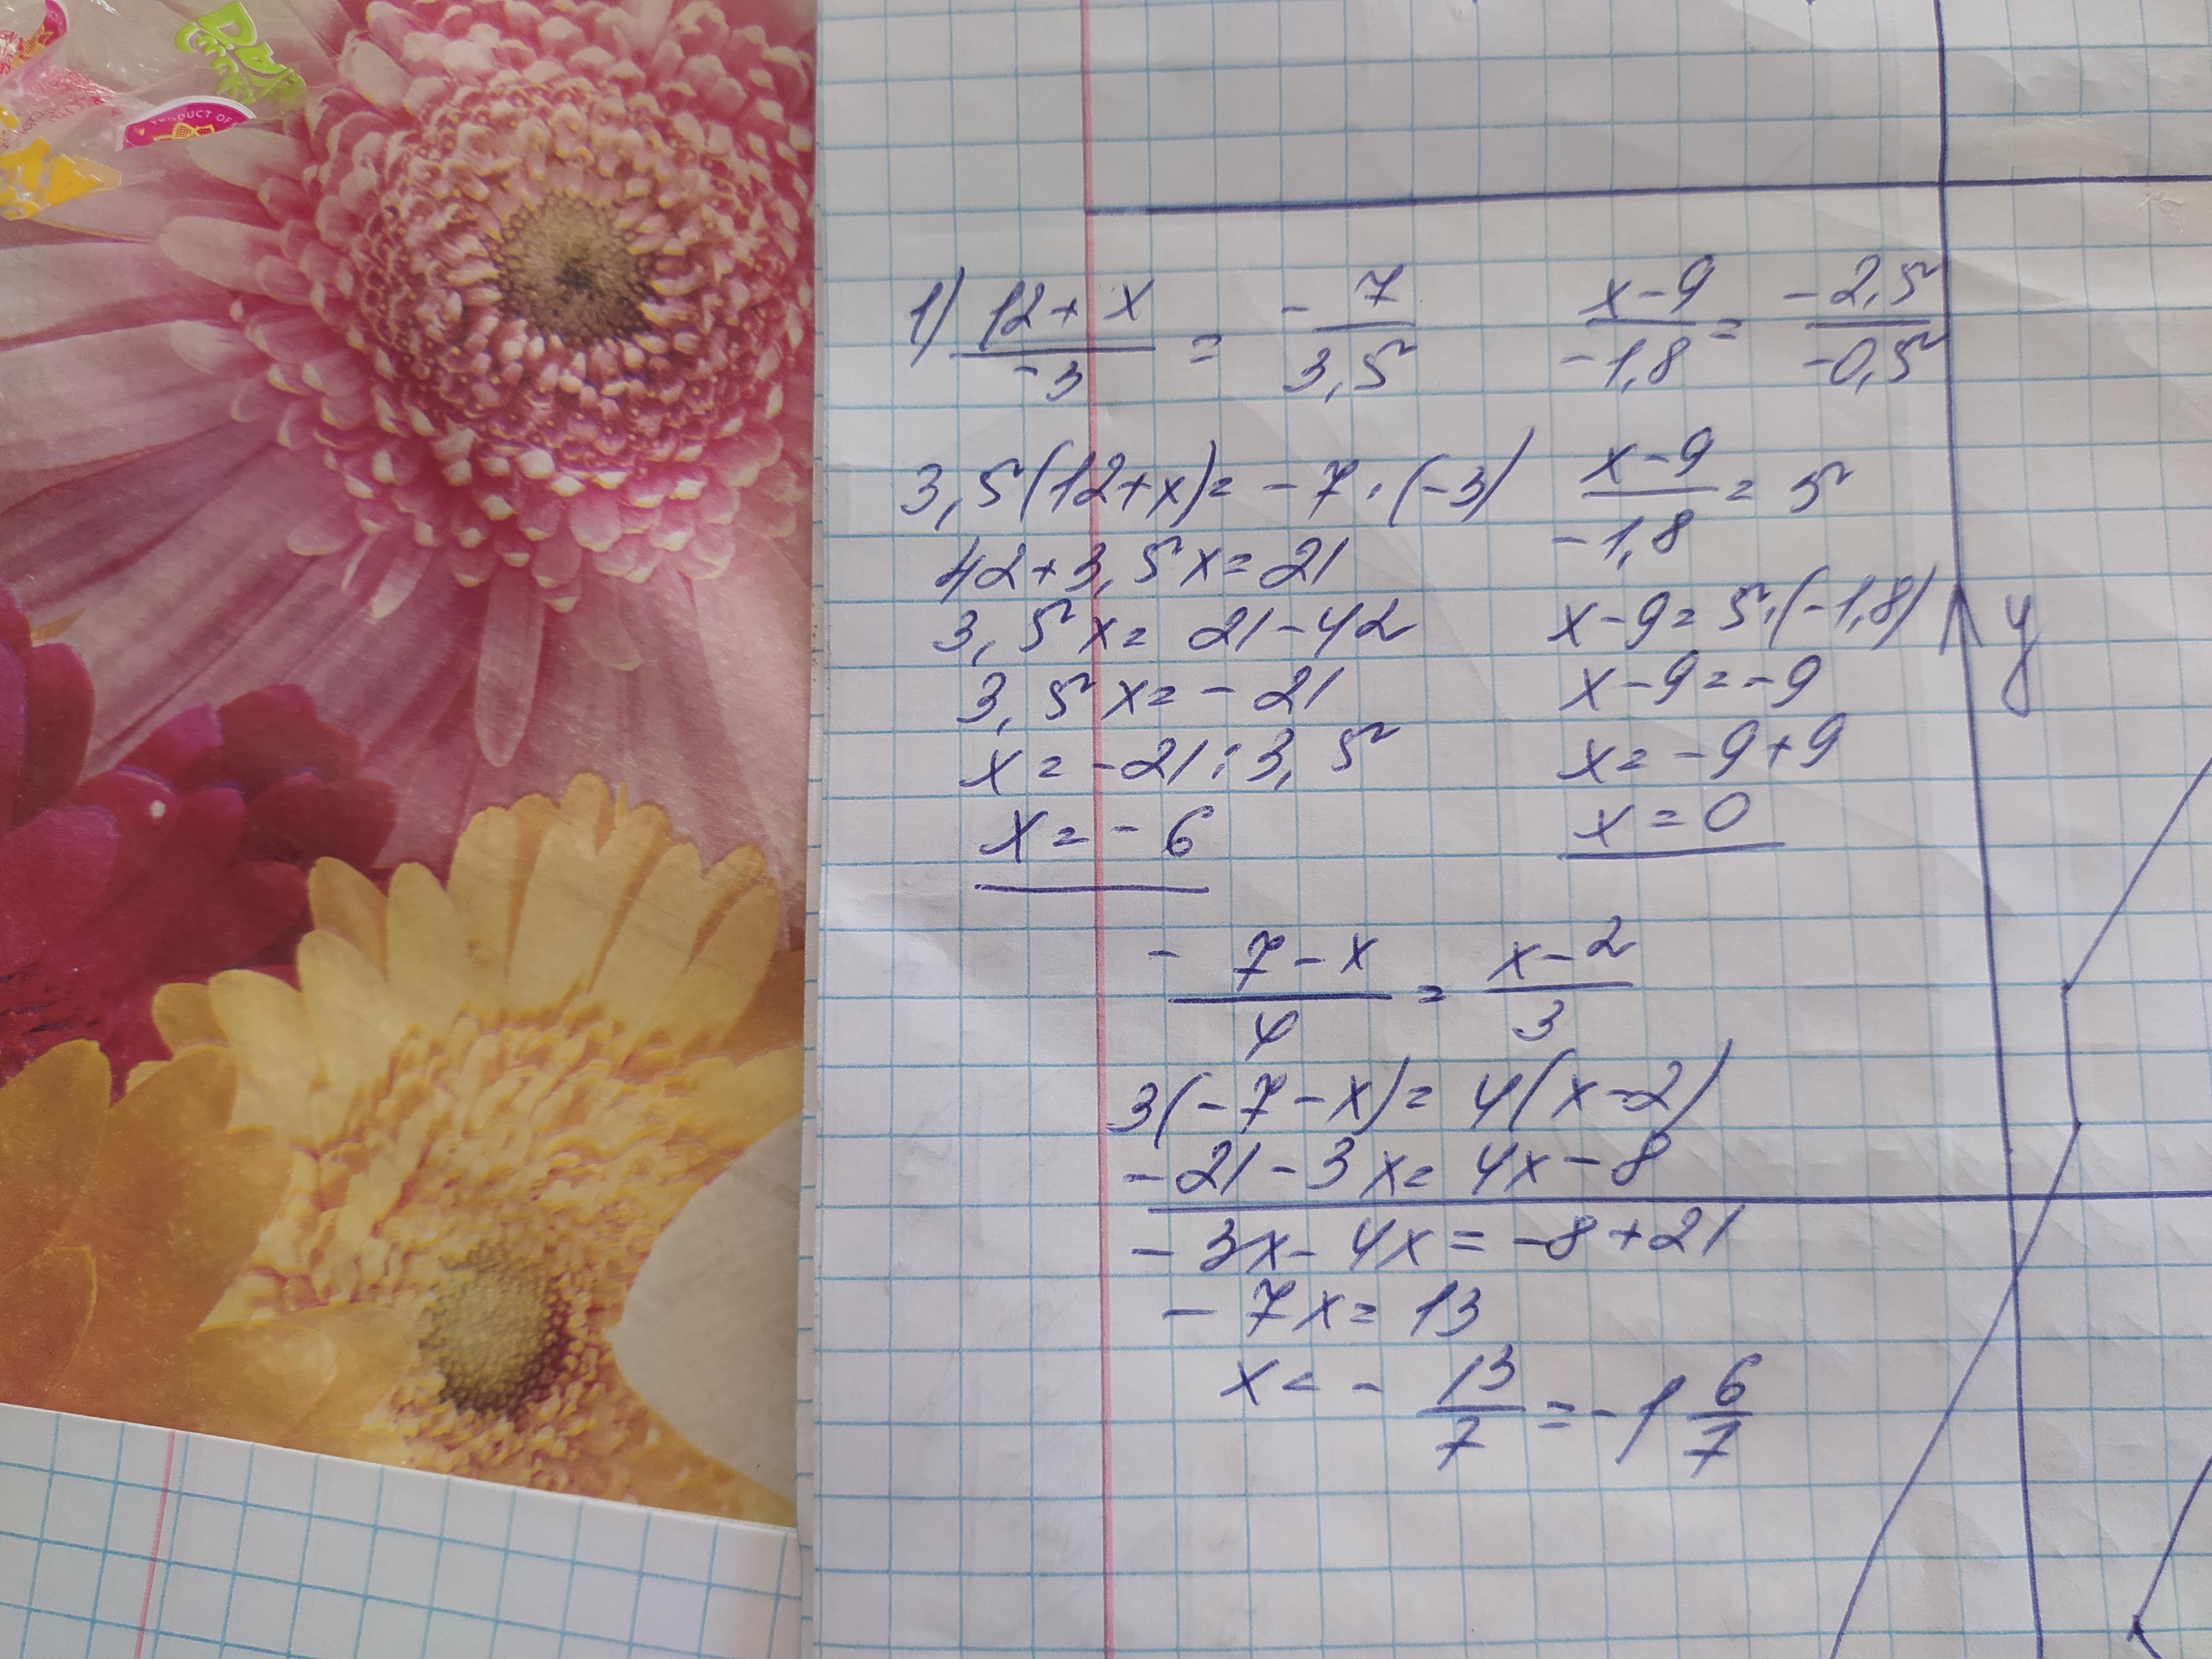 PRODUCT OF
1) (12+x)/(-3) = -7/3,5
3,5(12+x)=-7·(-3)
42+3,5x=21
3,5x=21-42
3,5x=-21
x=-21:3,5
x=-6
(x-9)/(-1,8) = (-2,5)/(-0,5)
(x-9)/(-1,8) = 5
x-9=5·(-1,8)
x-9=-9
x=-9+9
x=0
y
(-7-x)/4 = (x-2)/3
3(-7-x)=4(x-2)
-21-3x=4x-8
-3x-4x=-8+21
-7x=13
x=-13/7=-1 6/7